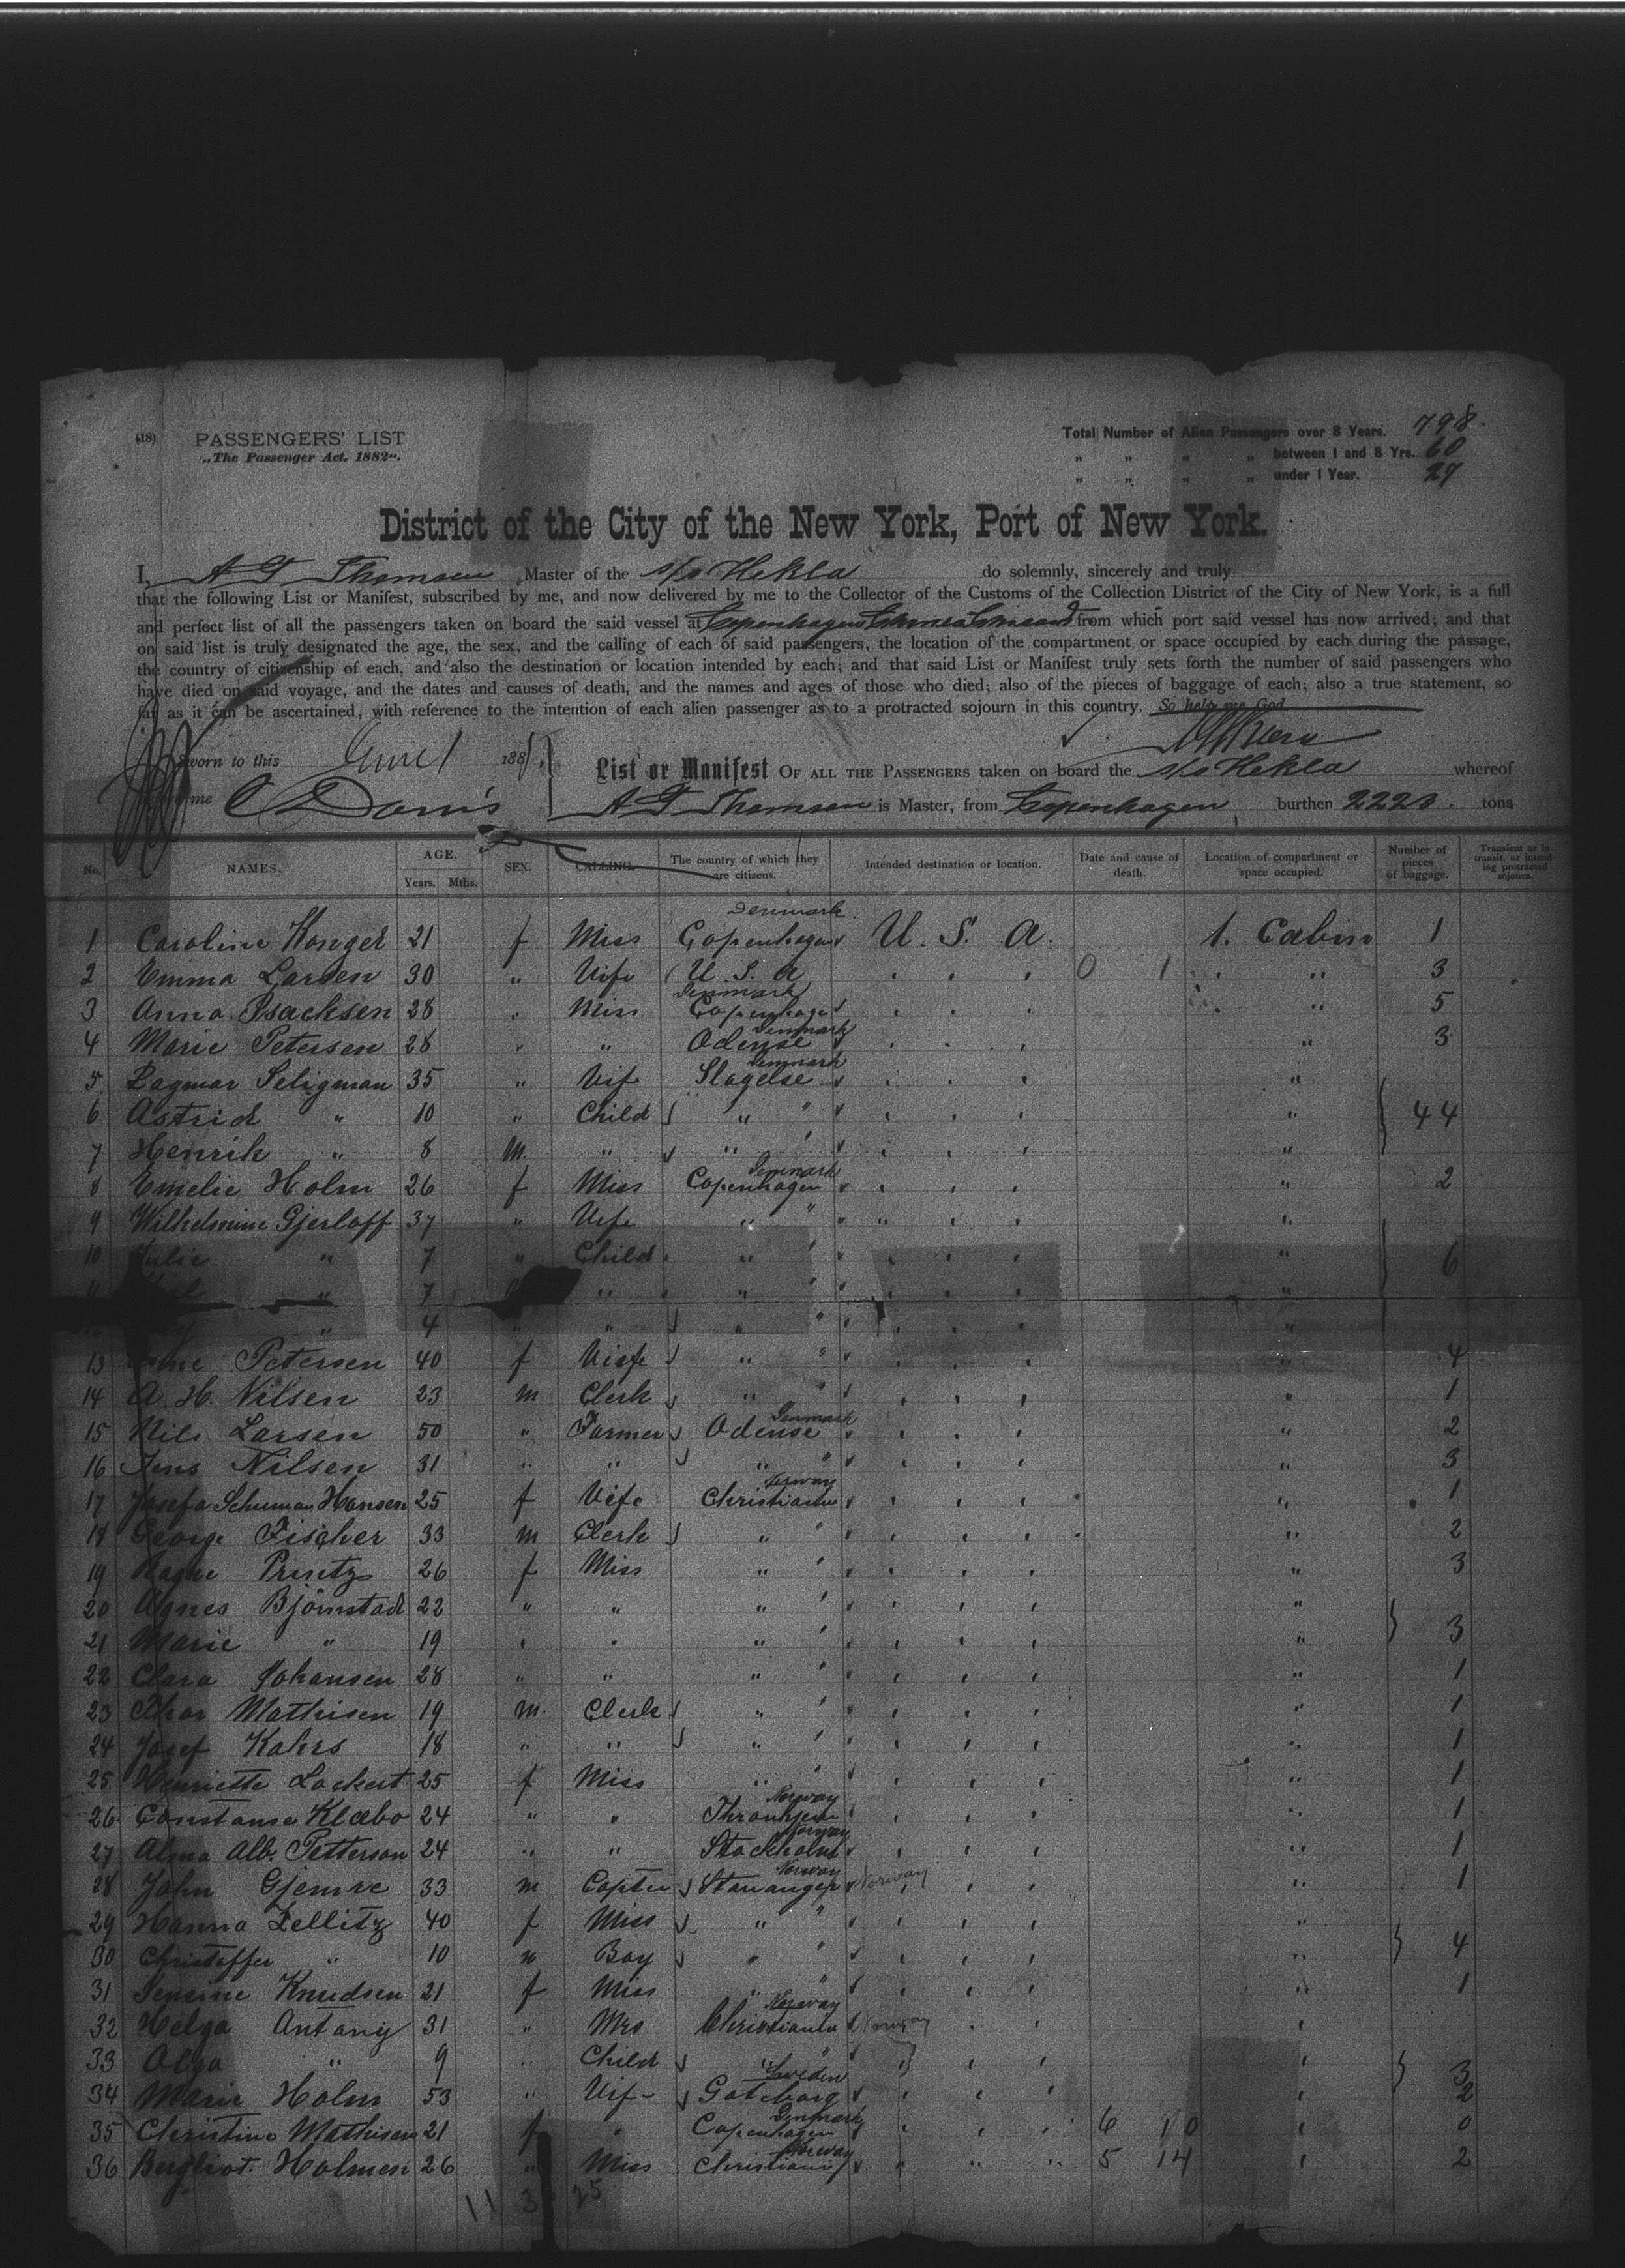 (18) PASSENGERS' LIST
„The Passenger Act, 1882“.
Total Number of Alien Passengers over 8 Years. 798.
„ „ „ „ between 1 and 8 Yrs. 60
„ „ „ „ under 1 Year. 27
District of the City of the New York, Port of New York.
I, A G Thomsen Master of the s/s Hekla do solemnly, sincerely and truly
that the following List or Manifest, subscribed by me, and now delivered by me to the Collector of the Customs of the Collection District of the City of New York, is a full
and perfect list of all the passengers taken on board the said vessel at Copenhagen from which port said vessel has now arrived; and that
on said list is truly designated the age, the sex, and the calling of each of said passengers, the location of the compartment or space occupied by each during the passage,
the country of citizenship of each, and also the destination or location intended by each; and that said List or Manifest truly sets forth the number of said passengers who
have died on said voyage, and the dates and causes of death, and the names and ages of those who died; also of the pieces of baggage of each; also a true statement, so
far as it can be ascertained, with reference to the intention of each alien passenger as to a protracted sojourn in this country. So help me God
Sworn to this June 1 188
me
List or Manifest OF ALL THE PASSENGERS taken on board the s/s Hekla whereof
A G Thomsen is Master, from Copenhagen, burthen 2220. tons
No. NAMES. AGE. Years. Mths. SEX. CALLING. The country of which they are citizens. Intended destination or location. Date and cause of death. Location of compartment or space occupied. Number of pieces of baggage. Transient or in transit, or intending protracted sojourn.
1 Caroline 21 f Miss Copenhagen Denmark U. S. A. 1. Cabin 1
2 Emma Larsen 30 „ Wife U. S. A 0 1 „ 3
3 Anna Isacksen 28 „ Miss Copenhagen Denmark „ 5
4 Marie Petersen 28 „ „ Odense Denmark „ 3
5 Dagmar Seligman 35 „ Wif Slagelse Denmark „
6 Astrid „ 10 „ Child „ „ „ 44
7 Henrik „ 8 m. „ „ „ „
8 Emelie Holm 26 f Miss Copenhagen Denmark „ 2
9 Wilhelmine Gjerloff 37 „ Wife „ „ „
10 Julie „ 7 „ Child „ „ „ 6
11 „ 7 „ „ „ „
„ 4 „ „ „ „ „
13 Petersen 40 f Wiefe „ „ „ 4
14 A. H. Nilsen 23 m Clerk „ „ „ 1
15 Nils Larsen 50 „ Farmer Odense Denmark „ 2
16 Jens Nilsen 31 „ „ „ „ „ 3
17 Josefa Schuman Hansen 25 f Wife Christiania Norway „ 1
18 George Fischer 33 m Clerk „ „ „ 2
19 Printz 26 f Miss „ „ „ 3
20 Agnes Björnstad 22 „ „ „ „ „
21 Marie „ 19 „ „ „ „ „ 3
22 Clara Johansen 28 „ „ „ „ „ 1
23 Thor Mathisen 19 m. Clerk „ „ „ 1
24 Josef Kahrs 18 „ „ „ „ „ 1
25 Henriette Lockert 25 f Miss „ „ „ 1
26 Constanse Klæbo 24 „ „ Throndhjem Norway „ 1
27 Alma Alb. Petterson 24 „ „ Stockholm Norway „ 1
28 John Gjemre 33 m Stavanger Norway Norway „ 1
29 Hanna Zellitz 40 f Miss „ „ „
30 Christoffer „ 10 m Boy „ „ „ 4
31 Jensine Knudsen 21 f Miss „ „ „ 1
32 Helga Antony 31 „ Mrs Christiania Norway Norway „
33 Olga „ 9 „ Child „ „ „ 3
34 Marie Holm 53 „ Wif Goteborg Sweden „ 2
35 Christine Mathisen 21 f „ Copenhagen Denmark 6 10 „ 0
36 Bergliot Holmen 26 „ Miss Christiania Norway 5 14 „ 2
11 3 25